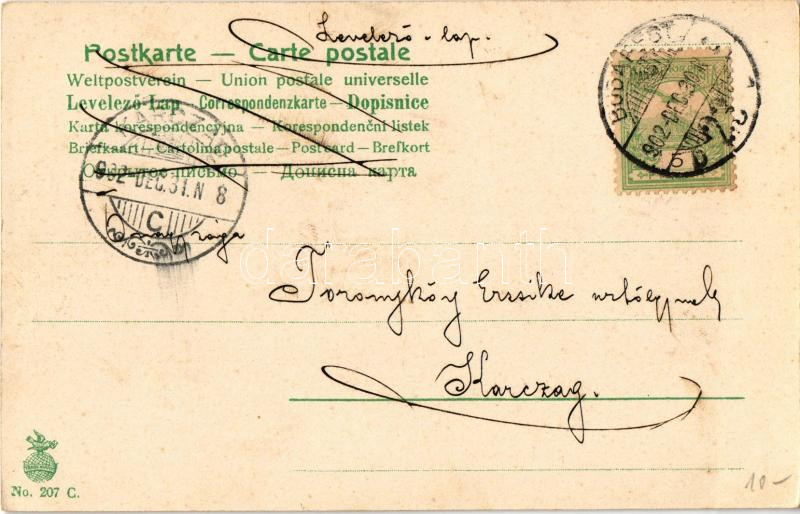 Levelező-lap.
Postkarte — Carte postale
Weltpostverein — Union postale universelle
Levelező-Lap Correspondenzkarte — Dopisnice
Karta korespondencyjna — Korespondenční listek
Briefkaart — Cartolina postale — Postcard — Brefkort
Открытое письмо — Дописна карта
BUDAPEST
902-DEC.30.N
KARCZAG
902-DEC.31.N 8
C
Nagysága
darabanth
Toronyköy Erzsike
Karczag.
No. 207 C.
10-